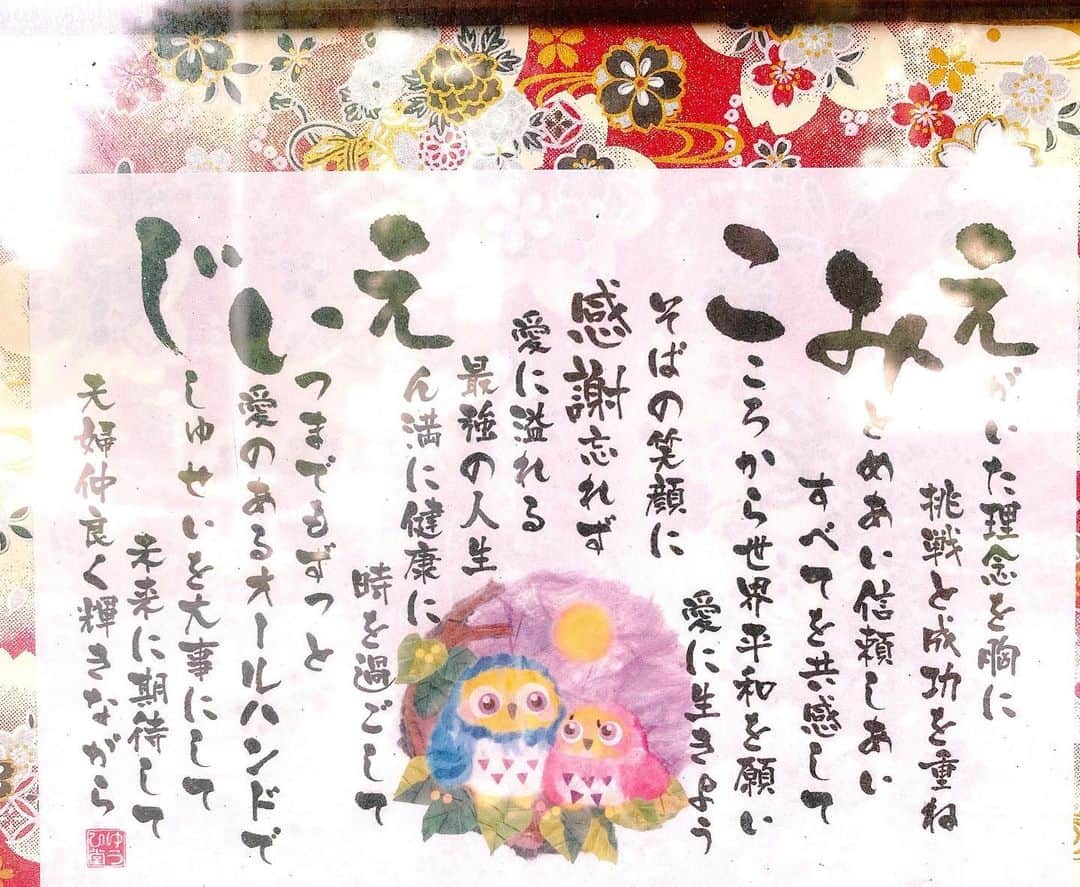 えがいた理念を胸に
挑戦と成功を重ね
みとめあい信頼しあい
すべてを共感して
こころから世界平和を願い
愛に生きよう
そばの笑顔に
感謝忘れず
愛に溢れる
最強の人生
えん満に健康に
時を過ごして
いつまでもずっと
愛のあるオールハンドで
じしゅせいを大事にして
未来に期待して
夫婦仲良く輝きながら